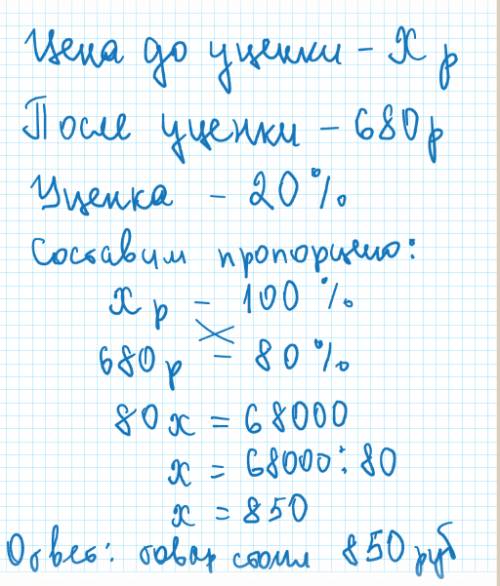 Цена до уценки – х р
После уценки – 680р
Уценка – 20%
Составим пропорцию:
х р – 100 %
680р – 80%
80х = 68000
х = 68000:80
х = 850
Ответ: товар стоил 850 руб